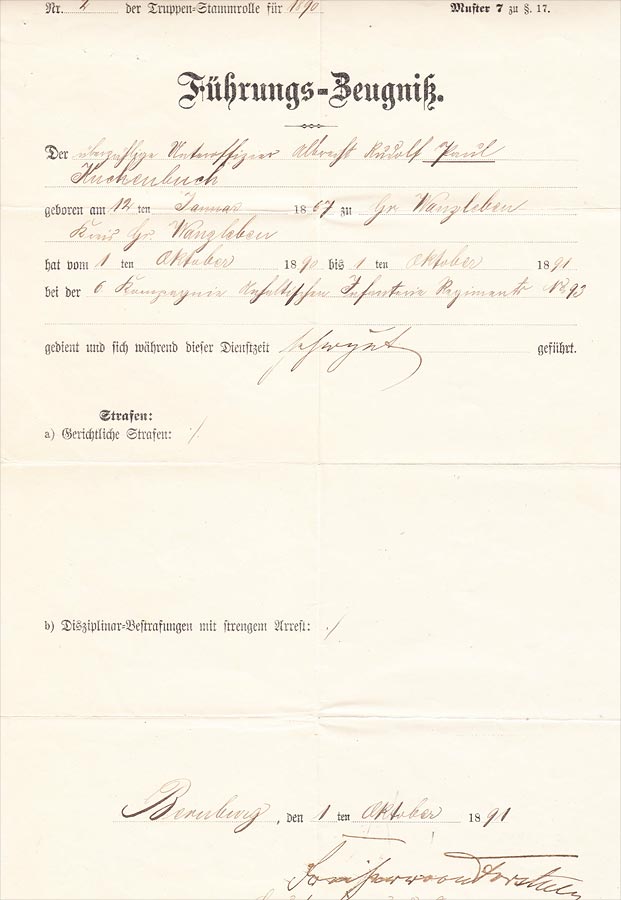 Nr. 2 der Truppen-Stammrolle für 1890 Muster 7 zu §. 17.
Führungs-Zeugniß.
Der überzählige Unteroffizier Albrecht Rudolf Paul
Kuchenbuch
geboren am 12 ten Januar 1867 zu Gr Wanzleben
Kreis Gr. Wanzleben
hat vom 1 ten Oktober 1890 bis 1 ten Oktober 1891
bei der 6 Kompagnie Anhaltischen Infanterie Regiments No 93
gedient und sich während dieser Dienstzeit sehr gut geführt.
Strafen:
a) Gerichtliche Strafen: ./.
b) Disziplinar-Bestrafungen mit strengem Arrest: ./.
Bernburg, den 1 ten Oktober 1891